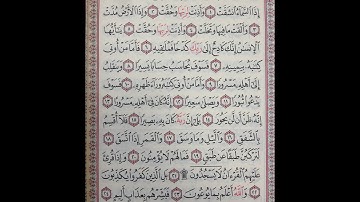 إِذَا السَّمَاءُ انشَقَّتْ ١ وَأَذِنَتْ لِرَبِّهَا وَحُقَّتْ ٢ وَإِذَا الْأَرْضُ مُدَّتْ
٣ وَأَلْقَتْ مَا فِيهَا وَتَخَلَّتْ ٤ وَأَذِنَتْ لِرَبِّهَا وَحُقَّتْ ٥ يَا أَيُّهَا
الْإِنسَانُ إِنَّكَ كَادِحٌ إِلَىٰ رَبِّكَ كَدْحًا فَمُلَاقِيهِ ٦ فَأَمَّا مَنْ أُوتِيَ
كِتَابَهُ بِيَمِينِهِ ٧ فَسَوْفَ يُحَاسَبُ حِسَابًا يَسِيرًا ٨ وَيَنقَلِبُ
إِلَىٰ أَهْلِهِ مَسْرُورًا ٩ وَأَمَّا مَنْ أُوتِيَ كِتَابَهُ وَرَاءَ ظَهْرِهِ ١٠ فَسَوْفَ
يَدْعُو ثُبُورًا ١١ وَيَصْلَىٰ سَعِيرًا ١٢ إِنَّهُ كَانَ فِي أَهْلِهِ مَسْرُورًا ١٣
إِنَّهُ ظَنَّ أَن لَّن يَحُورَ ١٤ بَلَىٰ إِنَّ رَبَّهُ كَانَ بِهِ بَصِيرًا ١٥ فَلَا أُقْسِمُ
بِالشَّفَقِ ١٦ وَاللَّيْلِ وَمَا وَسَقَ ١٧ وَالْقَمَرِ إِذَا اتَّسَقَ ١٨
لَتَرْكَبُنَّ طَبَقًا عَن طَبَقٍ ١٩ فَمَا لَهُمْ لَا يُؤْمِنُونَ ٢٠ وَإِذَا قُرِئَ
عَلَيْهِمُ الْقُرْآنُ لَا يَسْجُدُونَ ۩ ٢١ بَلِ الَّذِينَ كَفَرُوا يُكَذِّبُونَ
٢٢ وَاللَّهُ أَعْلَمُ بِمَا يُوعُونَ ٢٣ فَبَشِّرْهُم بِعَذَابٍ أَلِيمٍ ٢٤